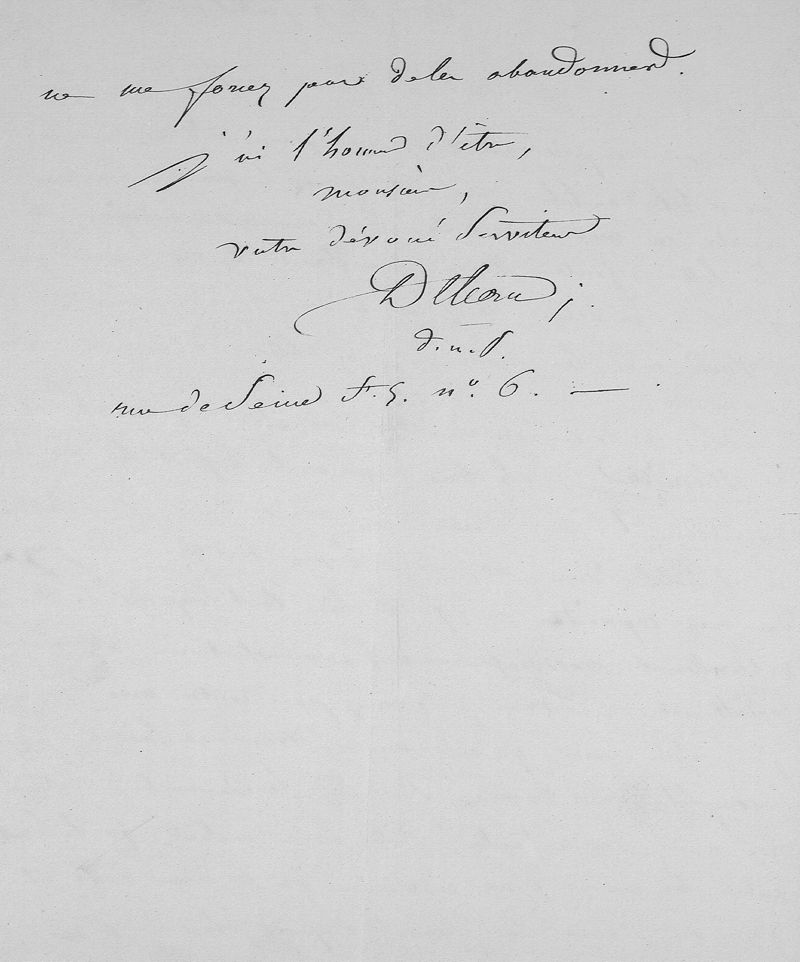 ne me forcez pas de les abandonner.
j'ai l'honneur d'être,
monsieur,
votre dévoué serviteur
d.m.p.
rue de Seine f. G. n° 6. —